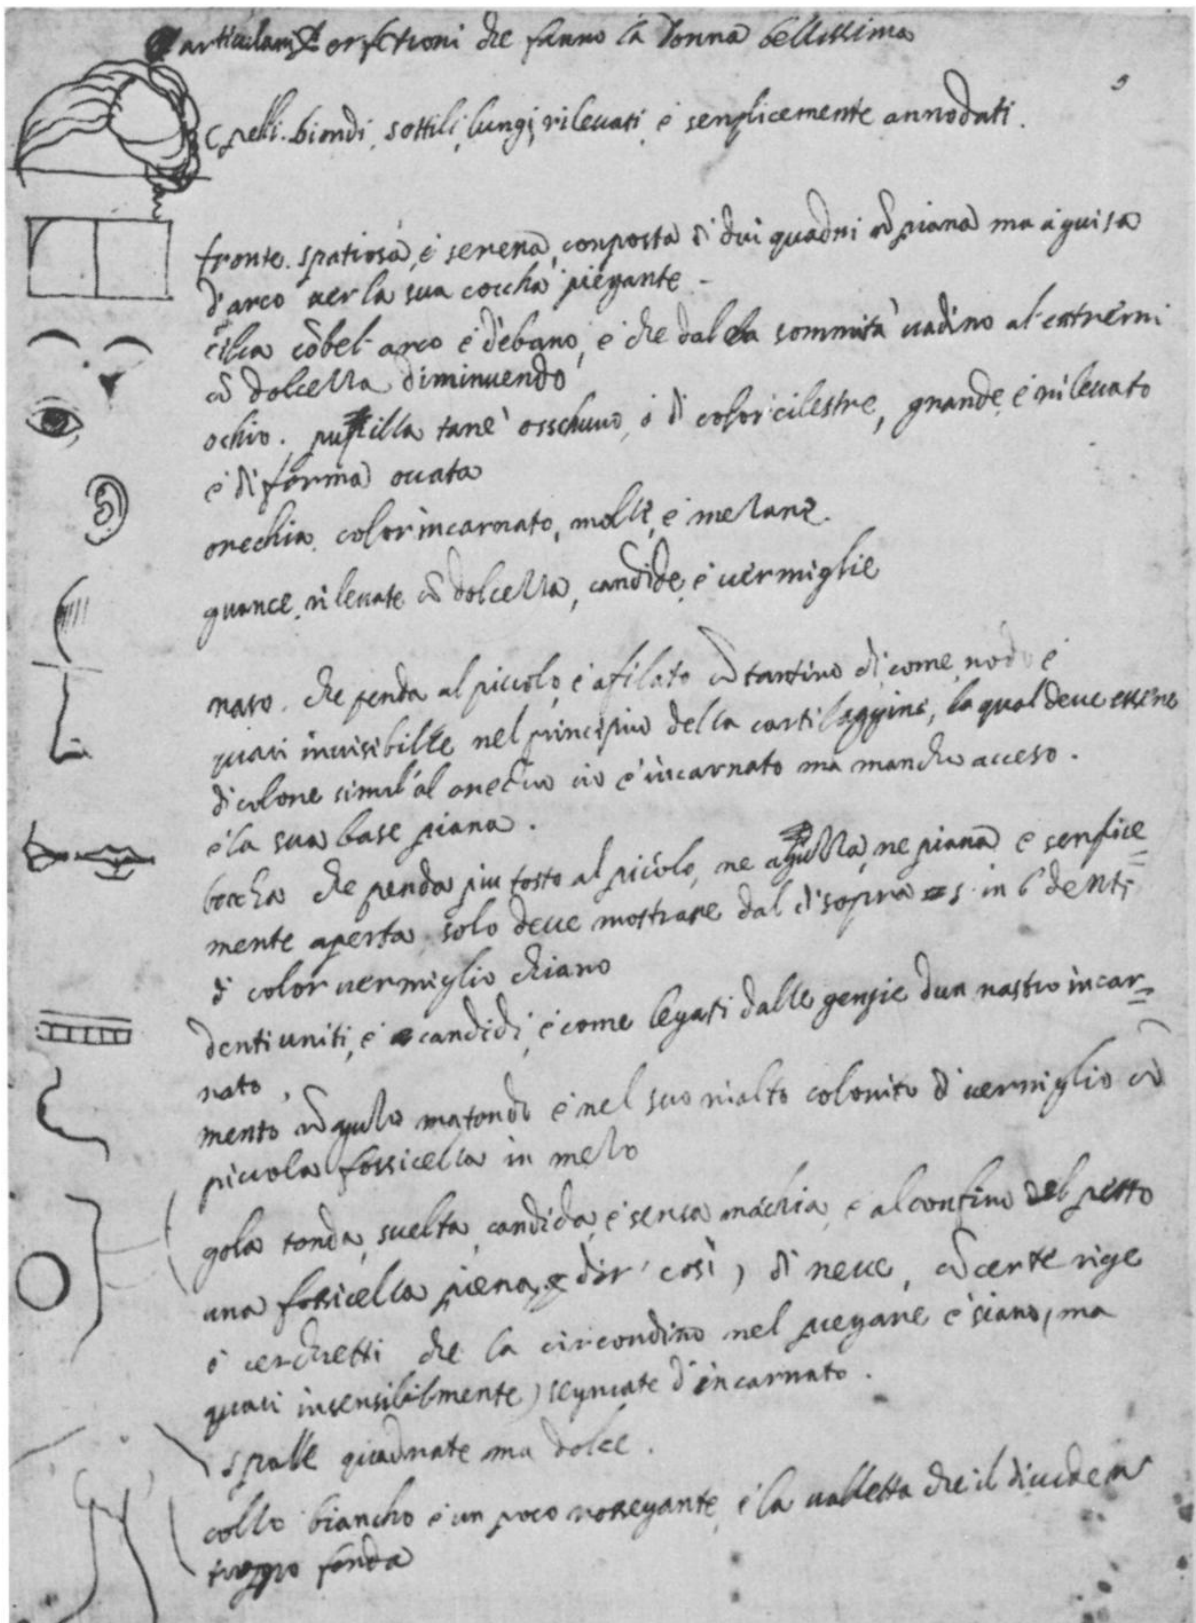 Particulari Perfetioni che fanno la Donna bellissima
5
Cpelli. biondi, sottili, lungi, rileuati, è senplicemente annodati.
fronte. spatiosa, è serena, conposta di dui quadri nō piana ma à guisa
d'arco uer la sua coccha piegante -
cilia cō bel arco è d'ebano, è che dal la sommità uadino al estremi
cō dolcezza diminuendo
ochio. pupilla tanè osschuro, ò di color cilestre, grande, è rileuato
è di forma ouata
orechia. color incarnato, molli, è mezane.
guance. rileuate cō dolcezza, candide, è uermiglie
naso. che penda al piccolo, è afilato cō tantino di come nodo è
quasi inuisibille nel principio della cartilaggine, la qual deue essere
di colore simil' al orechio cio è incarnato ma mancho acceso.
è la sua base piana.
boccha che penda piu tosto al picolo, ne aguzza, ne piana è senplice
mente aperta, solo deue mostrare dal di sopra 5 in 6 denti
di color uermiglio chiaro
denti uniti, è candidi, è come legati dalle gengie d un nastro incar=
nato,
mento nō aguzo ma tondo è nel suo rialto colorito di uermiglio cō
piccola fossicella in mezo
gola tonda, suelta, candida, è senza machia, è al confino del petto
una fossicella piena, p dir' così, di neue, cō certe rige
è cerchetti che la circondino nel piegare è siano, ma
quasi insensibilmente) segnate d' incarnato.
spalle quadrate ma dolce.
collo biancho è un poco rossegante, è la ualletta che il diuide
troppo fonda